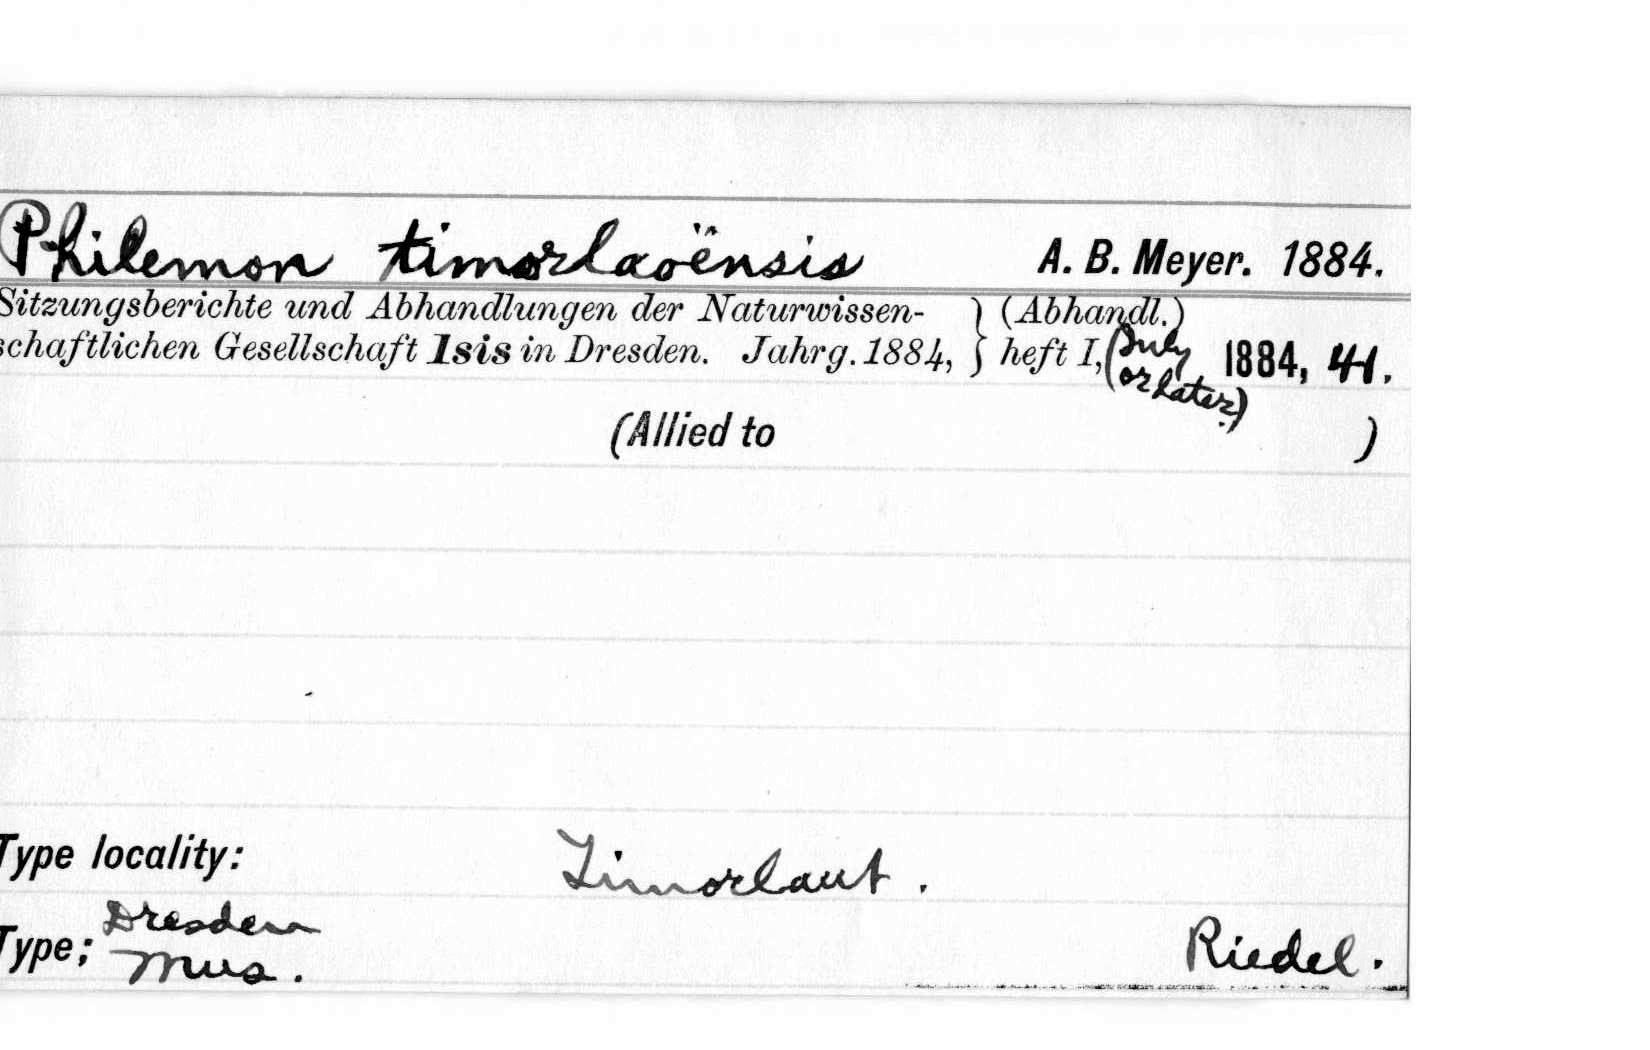 Philemon timorlaoënsis A. B. Meyer. 1884.
Sitzungsberichte und Abhandlungen der Naturwissen- } (Abhandl.)
schaftlichen Gesellschaft Isis in Dresden. Jahrg. 1884, } heft I, (July or later.) 1884, 41.
(Allied to )
Type locality: Timorlaut.
Type; Dresden Mus. Riedel.